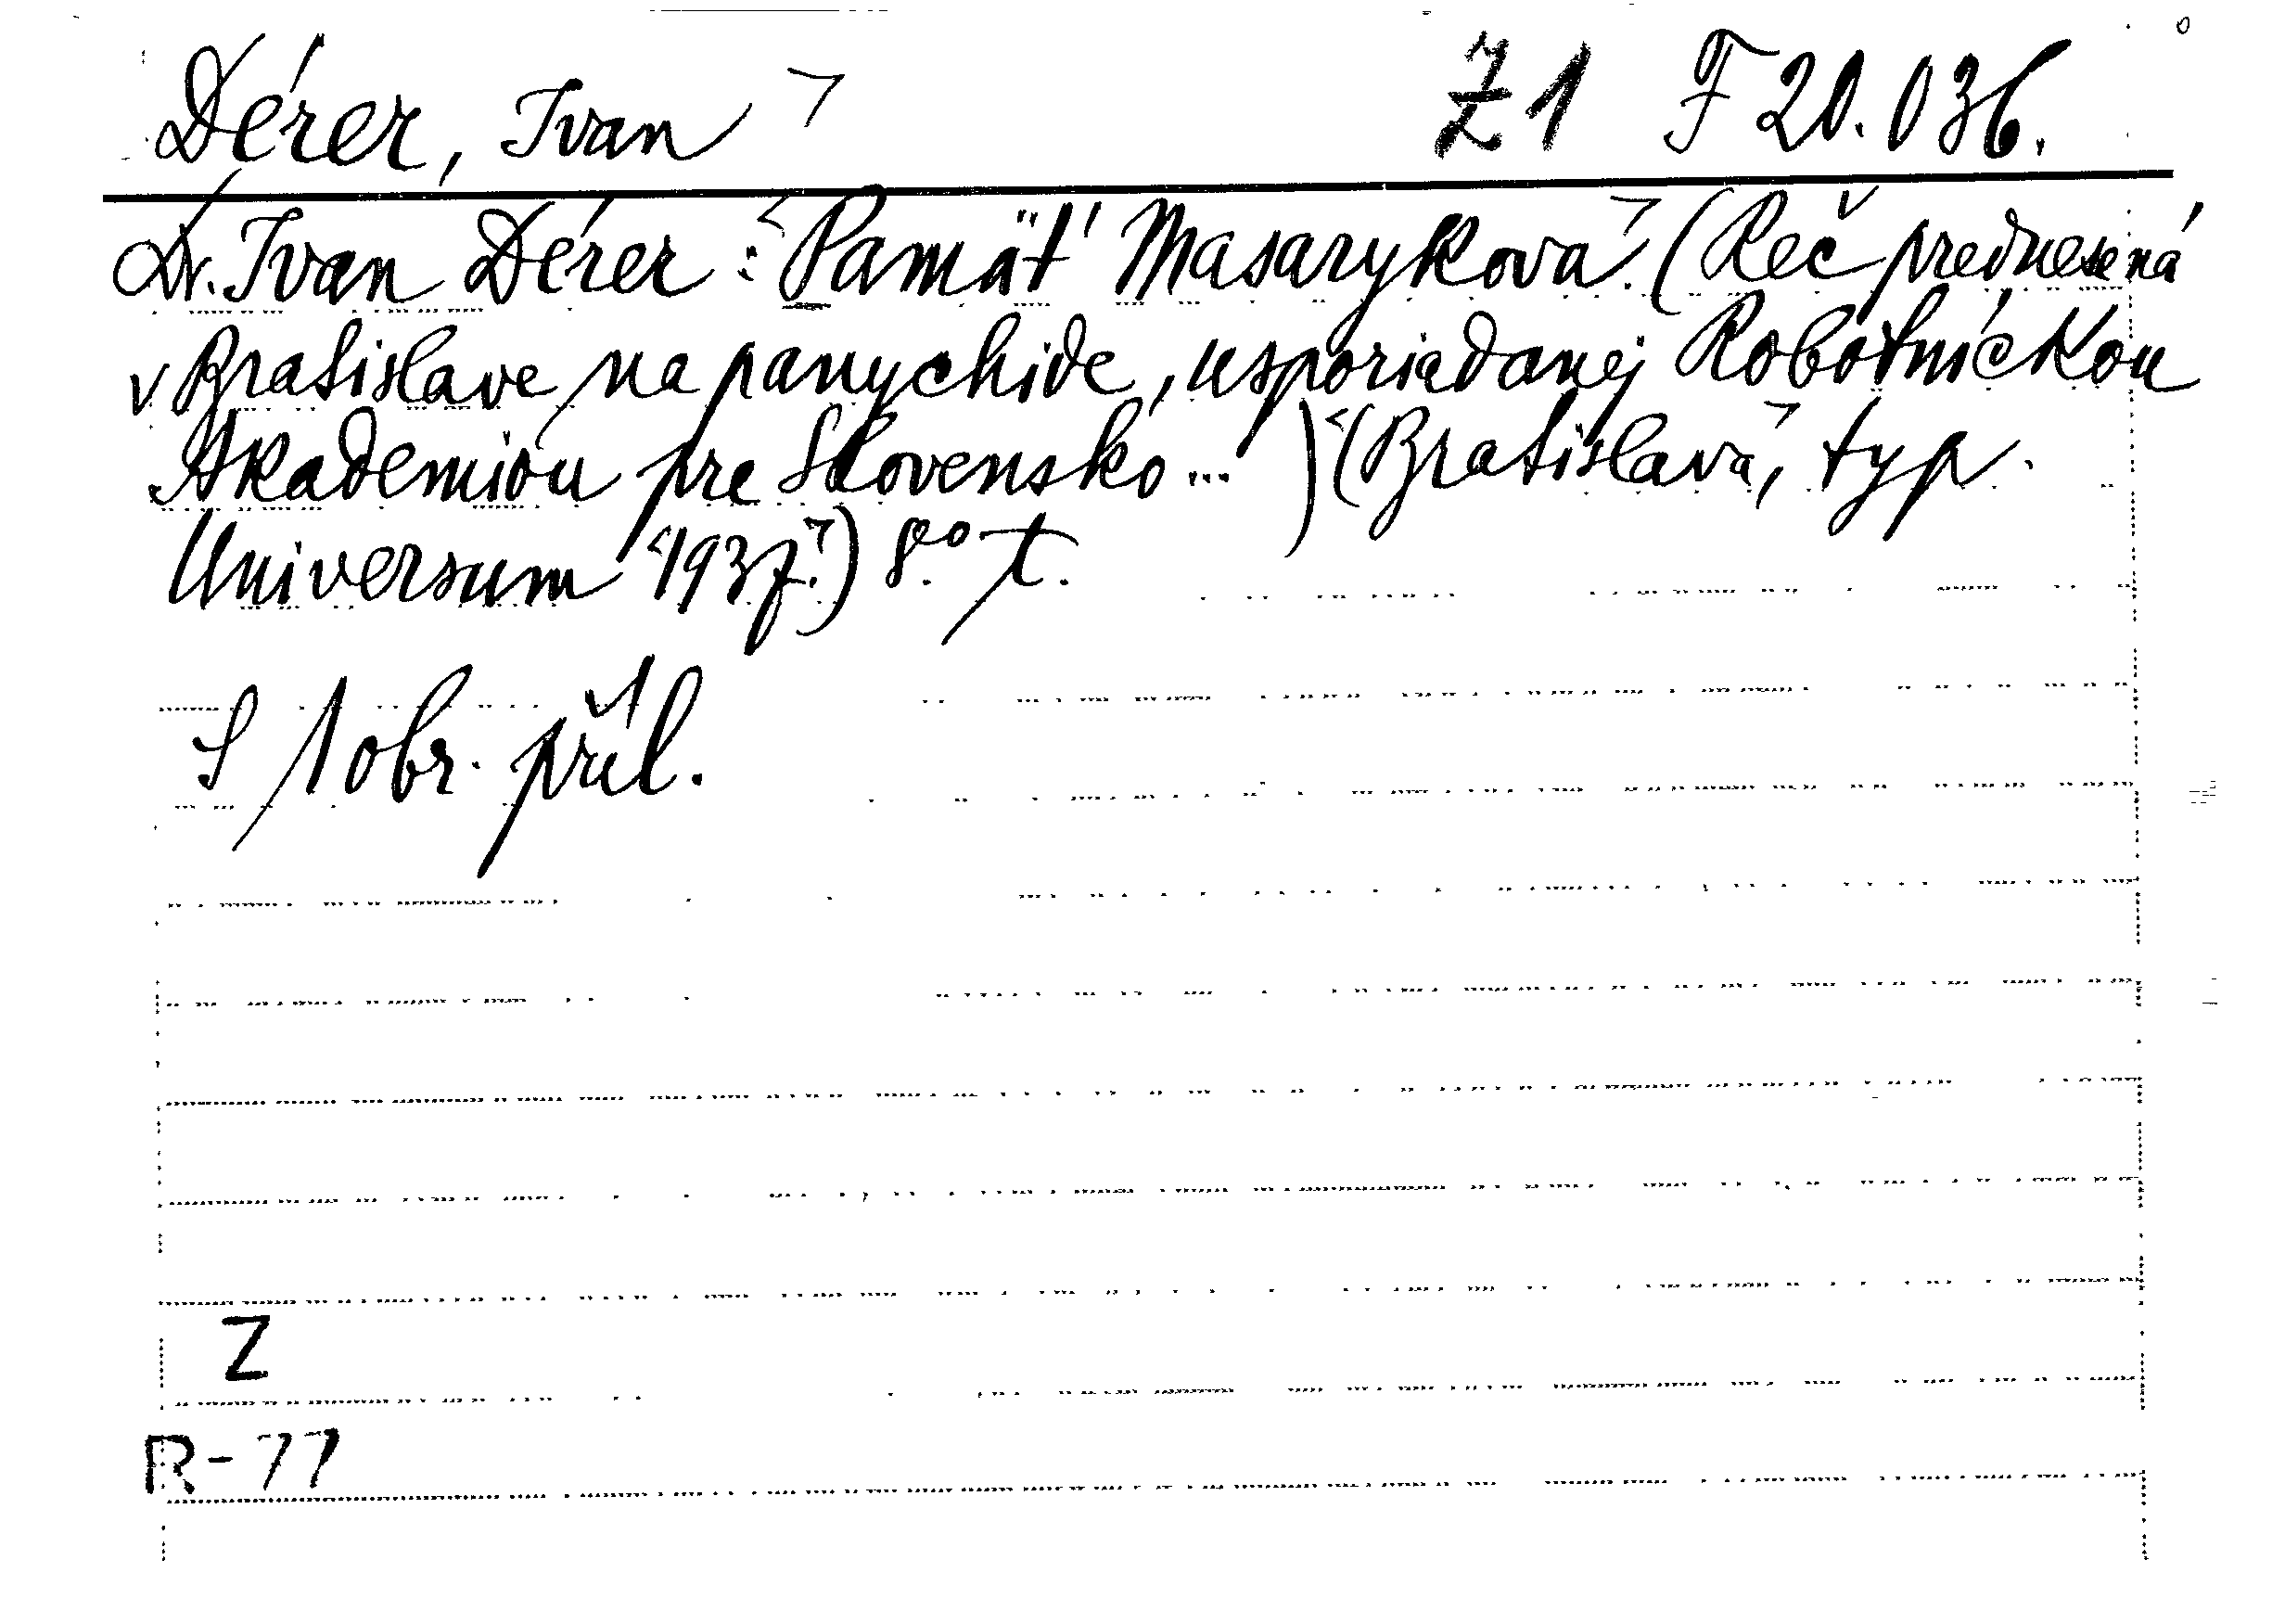 Dérer, Ivan ㄱ Z1 F 20.036.
Dr. Ivan Dérer: <Pamäť Masaryková.ㄱ (Reč prednesená
v Bratislave na panychide, usporiadanej Robotníckou
Akademiou pre Slovensko...) <(Bratislava,ㄱ typ.
Universum <1937.ㄱ) 8.° t.
S 1 obr. příl.
Z
R-77